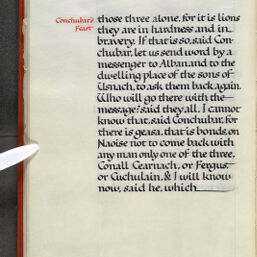 Conchubar's
Feast
those three alone, for it is lions
they are in hardness and in
bravery. If that is so, said Con-
chubar, let us send word by a
messenger to Alban, and to the
dwelling place of the sons of
Usnach, to ask them back again.
Who will go there with the
message? said they all. I cannot
know that, said Conchubar, for
there is geasa, that is bonds, on
Naoise not to come back with
any man only one of the three,
Conall Cearnach, or Fergus,
or Cuchulain, & I will know
now, said he, which